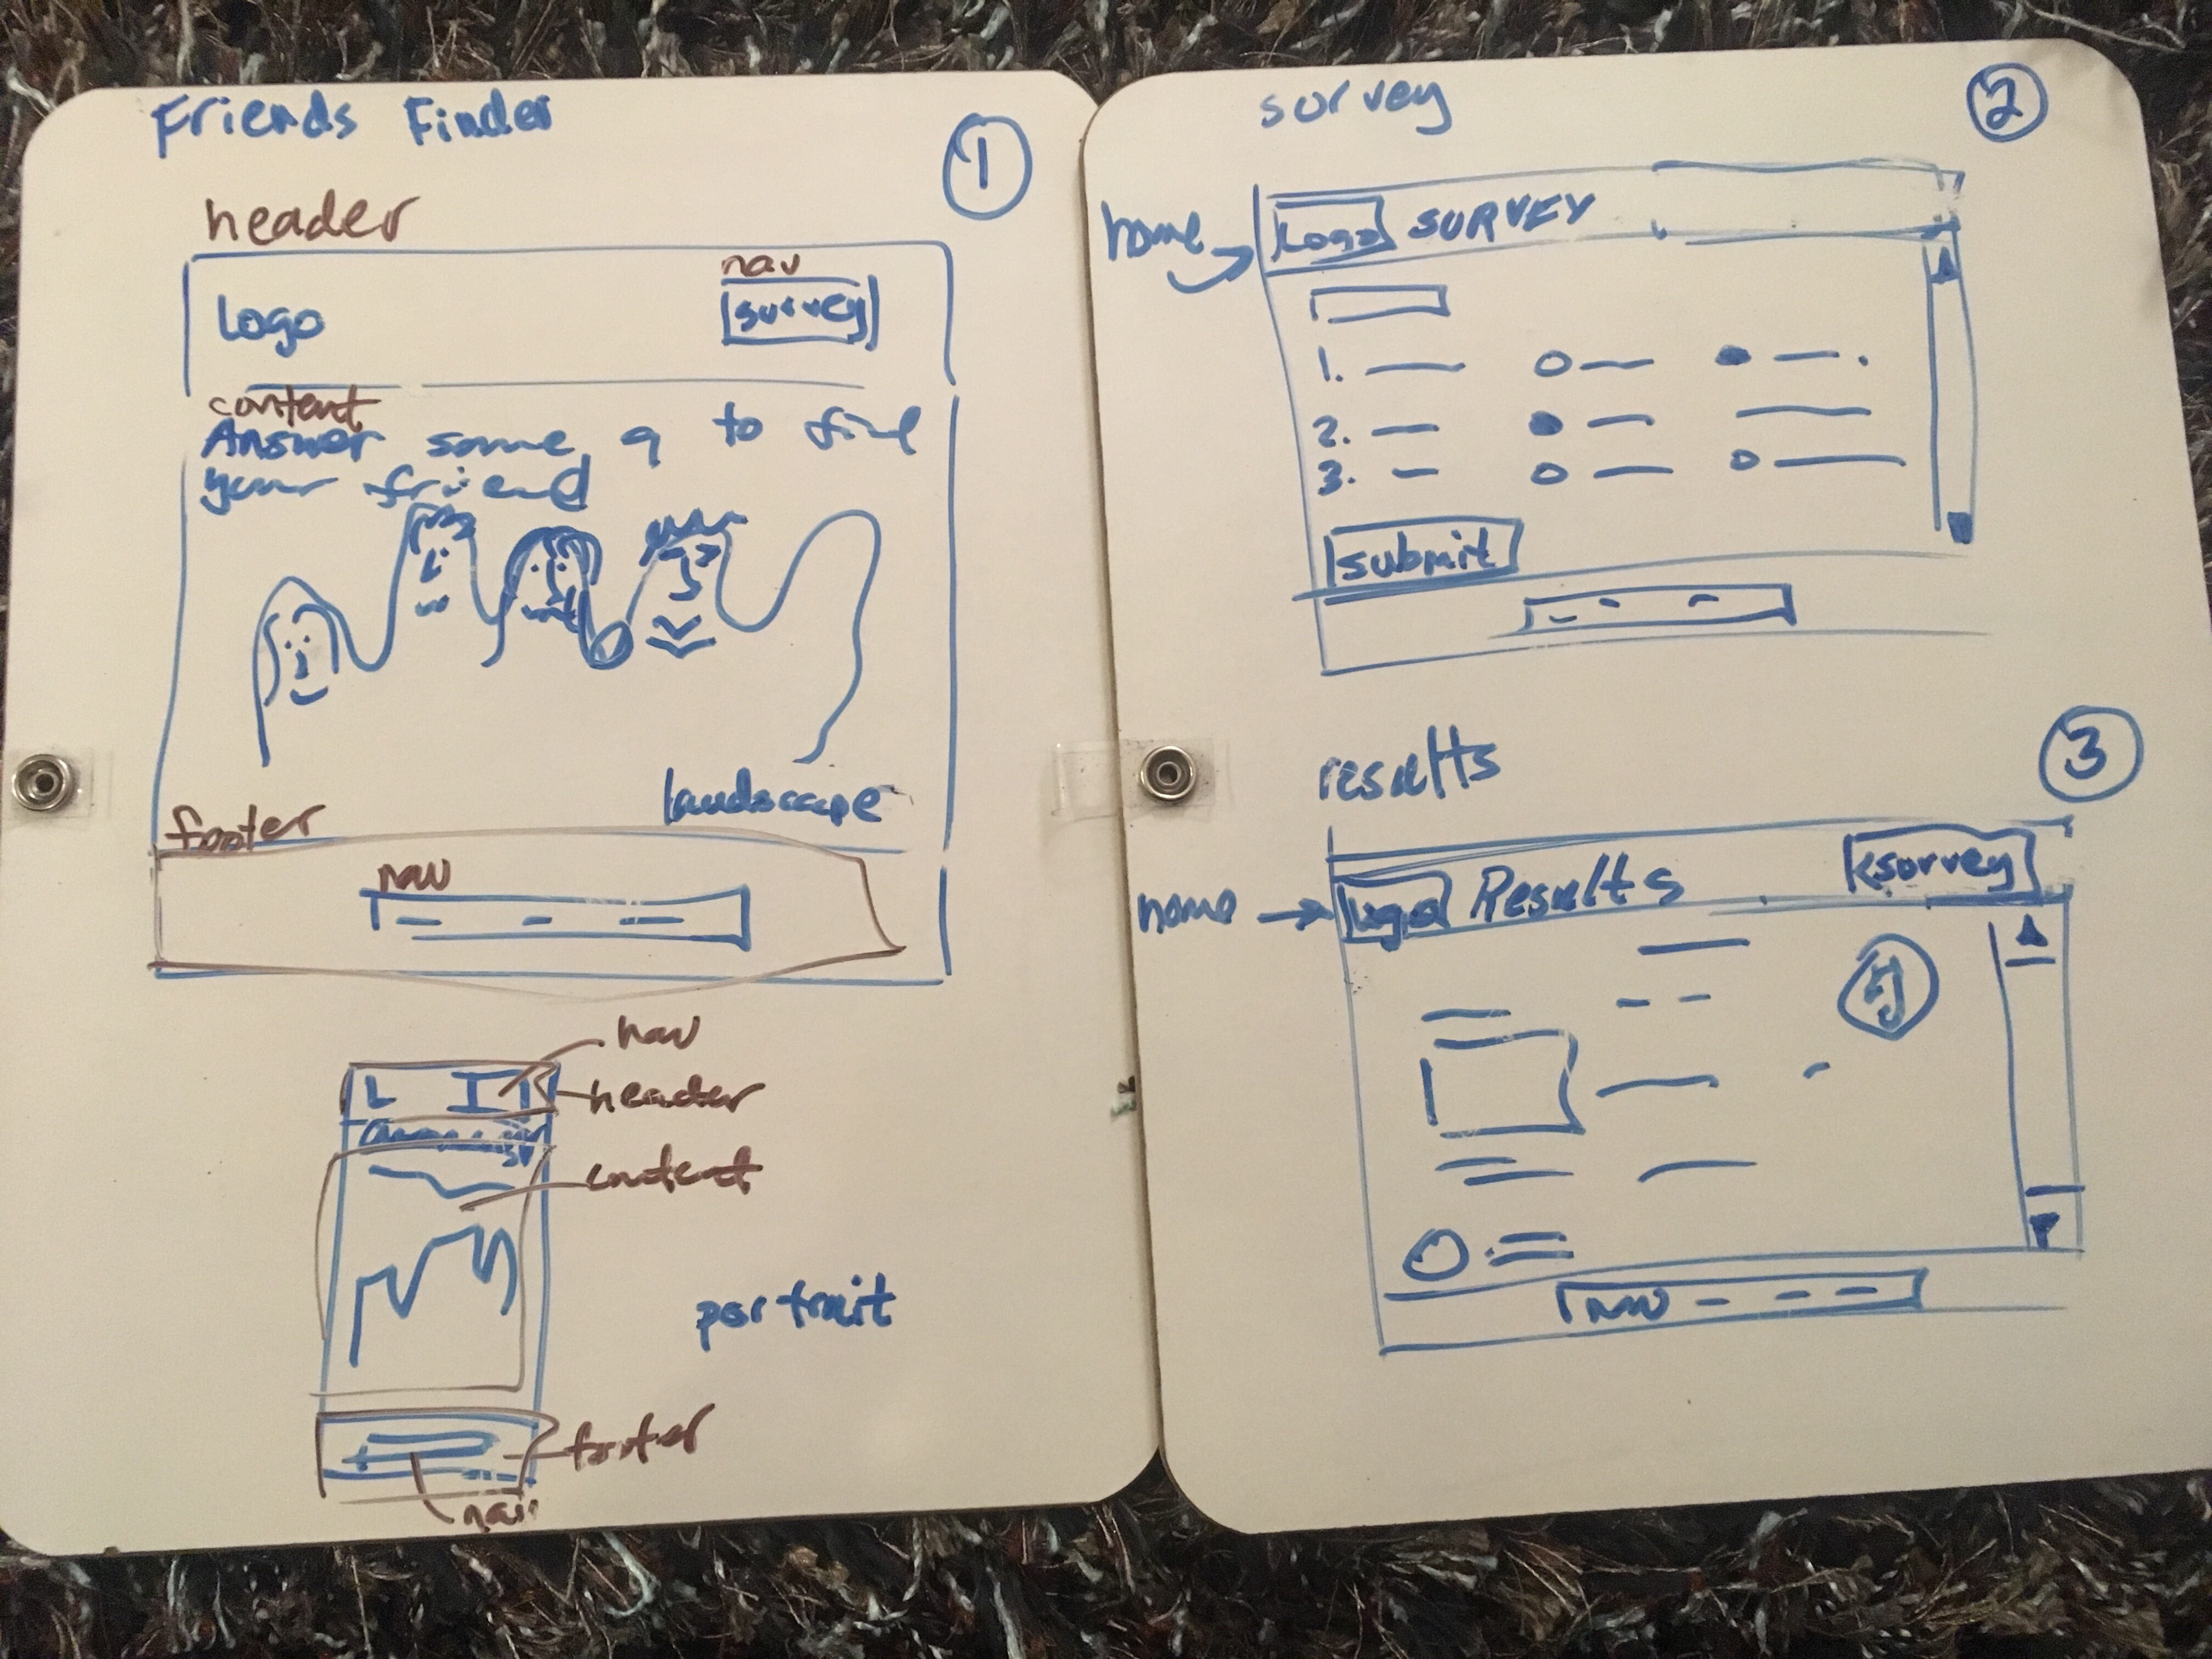 Friends Finder
1
header
nav
Logo
survey
content
Answer some q to find
your friend
landscape
footer
nav
nav
L
header
content
portrait
footer
nav
survey
2
home
Logo
SURVEY
1.
2.
3.
submit
results
3
home
Logo
Results
<survey
nav